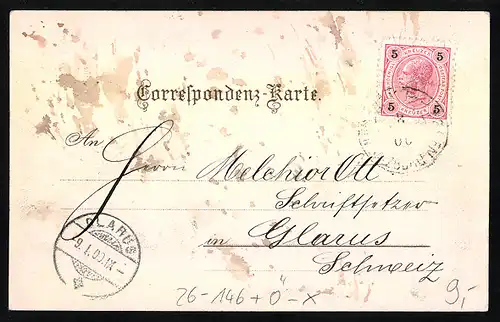 5 KREUZER 5
5 5
Correspondenz-Karte.
An
Herrn Melchior Ott
Schriftsetzer
in Glarus
Schweiz
GLARUS
9.I.00.IX-
00
26-146+Ö-X
9,-